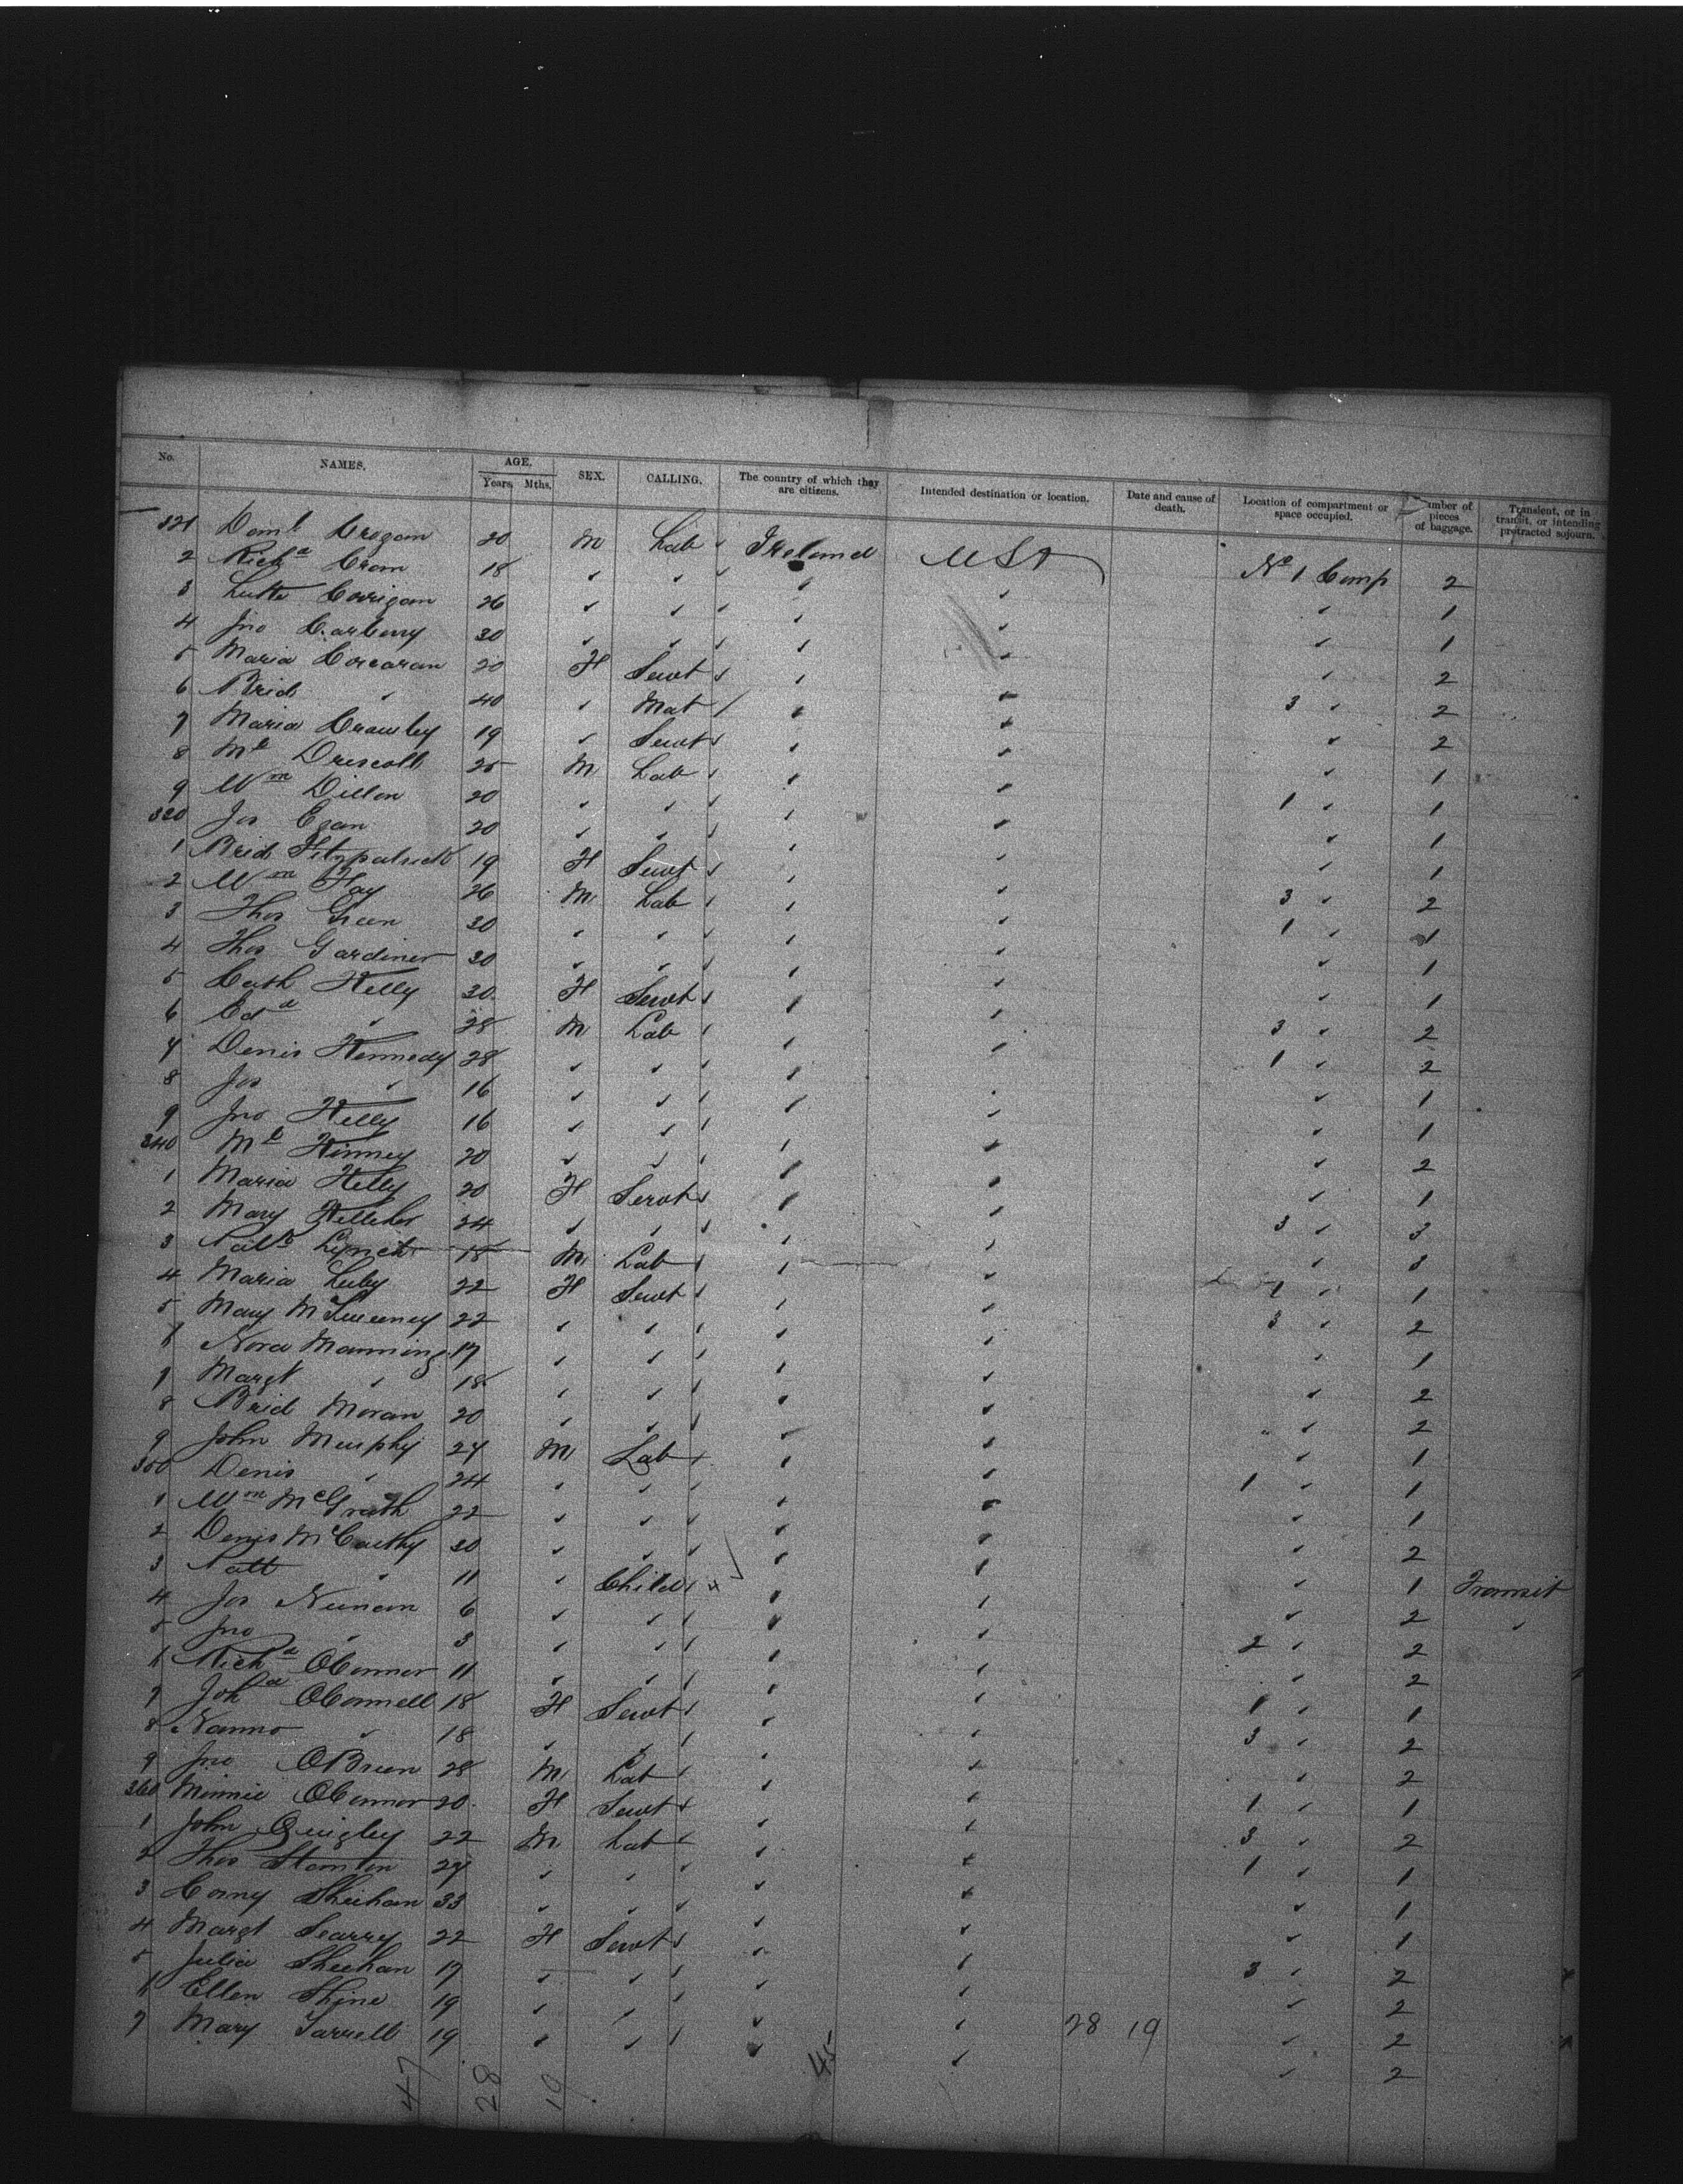 No. NAMES. AGE. Years, Mths. SEX. CALLING. The country of which they are citizens. Intended destination or location. Date and cause of death. Location of compartment or space occupied. umber of pieces of baggage. Transient, or in transit, or intending protracted sojourn.
321 Crogan 20 M Lab Ireland USA No 1 Comp 2
2 Richd 18 " " " " " 1
3 Corrigan 26 " " " " " 1
4 Jno Carberry 30 " " " " " 2
5 Maria Corcoran 20 F Servt " " 3 " 2
6 Brid " 40 " Mat " " " 2
7 Maria Crowley 19 " Servt " " " 1
8 Ml Driscoll 25 M Lab " " 1 " 1
9 Wm Dillon 20 " " " " " 1
330 Jos Egan 20 " " " " " 1
1 Brid Fitzpatrick 19 F Servt " " 3 " 2
2 Wm Fay 26 M Lab " " 1 " 1
3 Thos Green 30 " " " " " 1
4 Thos Gardiner 30 " " " " " 1
5 Cath Kelly 30 F Servt " " 3 " 2
6 Edd " 28 M Lab " " 1 " 2
7 Denis Kennedy 28 " " " " " 1
8 Jos " 16 " " " " " 1
9 Jno Kelly 16 " " " " " 2
340 Ml Kinney 20 " " " " " 1
1 Maria Kelly 20 F Servt " " 3 " 3
2 Mary Kelleher 24 " " " " " 3
3 Lynch 18 M Lab " " 1 " 1
4 Maria Luby 22 F Servt " " 3 " 2
5 Mary McSweeney 22 " " " " " 1
6 Nora Manning 17 " " " " " 2
7 Margt " 18 " " " " " 2
8 Brid Moran 20 " " " " " 1
9 John Murphy 27 M Lab " " 1 " 1
350 Denis " 24 " " " " " 1
1 Wm McGrath 22 " " " " " 2
2 Denis McCarthy 30 " " " " " 1 Transit
3 Patk " 11 " Child " " " 2 "
4 Jos Neenan 6 " " " " 2 " 2
5 Jno " 3 " " " " " 2
6 Richd OConnor 11 " " " " 1 " 1
7 OConnell 18 F Servt " " 3 " 2
8 Nanno " 18 " " " " " 2
9 Jno OBrien 28 M Lab " " 1 " 1
360 Minnie OConnor 20 F Servt " " 3 " 2
1 John Quigley 22 M Lab " " 1 " 1
2 Thos Stanton 27 " " " " " 1
3 Corny Sheehan 33 " " " " " 1
4 Margt Searry 22 F Servt " " 3 " 2
5 Julia Sheehan 17 " " " " " 2
6 Ellen Shine 19 " " " " " 2
7 Mary Farrell 19 " " " " " 2
28 19
47 28 19 45